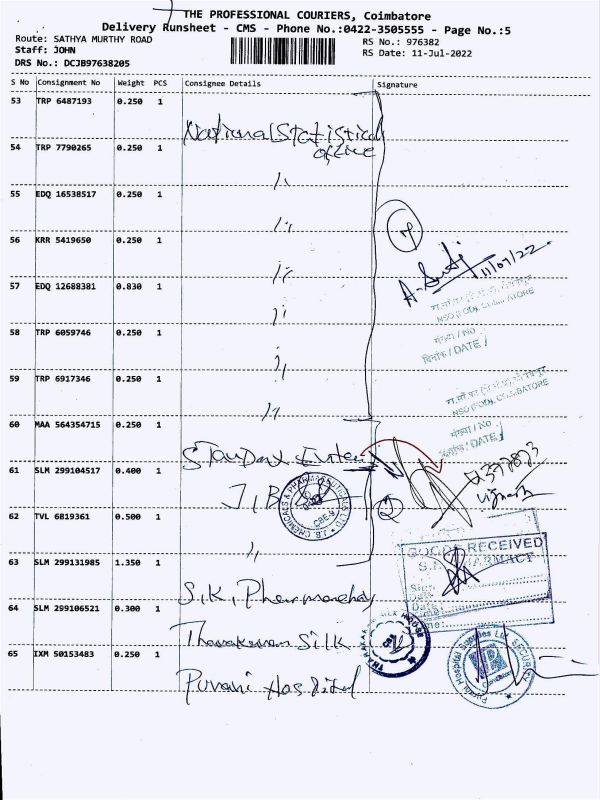 THE PROFESSIONAL COURIERS, Coimbatore
Delivery Runsheet - CMS - Phone No.:0422-3505555 - Page No.:5
Route: SATHYA MURTHY ROAD
RS No.: 976382
Staff: JOHN
RS Date: 11-Jul-2022
DRS No.: DCJB97638205
S No Consignment No Weight PCS Consignee Details Signature
53 TRP 6487193 0.250 1
National Statistical
office
54 TRP 7790265 0.250 1
55 EDQ 16538517 0.250 1
56 KRR 5419650 0.250 1
7
11/07/22
57 EDQ 12688381 0.830 1
NSO (FOD), COIMBATORE
संख्या / No
दिनांक / DATE
58 TRP 6059746 0.250 1
59 TRP 6917346 0.250 1
NSO (FOD), COIMBATORE
संख्या / No
दिनांक / DATE
60 MAA 564354715 0.250 1
61 SLM 299104517 0.400 1
J.B. CHEMICALS & PHARMACEUTICALS LTD
CBE-9
2
62 TVL 6819361 0.500 1
GOODS RECEIVED
S.K. PHARMACY
Sign
Date
63 SLM 299131985 1.350 1
S.K. Pharmachy
64 SLM 299106521 0.300 1
Silk
SILK HOUSE
65 IXM 50153483 0.250 1
Purani Hospital
Hospital Supplies Ltd. SECURITY